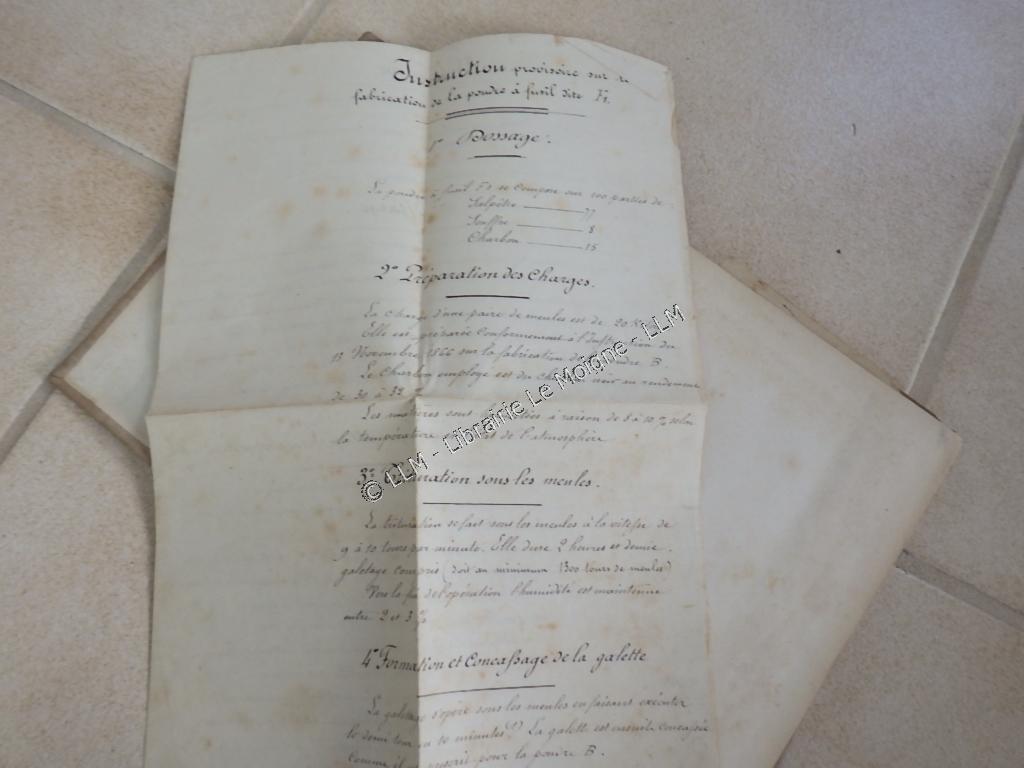 Instruction provisoire sur la
fabrication de la poudre à fusil dite F1.
1° Dossage.
La poudre à fusil F1 se compose sur 100 parties de
Salpêtre — 77
Souffre — 8
Charbon — 15
2° Préparation des Charges.
La charge d'une paire de meules est de 20 K
Elle est préparée Conformément à l'Instruction du
13 Novembre 1866 sur la fabrication de la poudre B.
Le Charbon employé est du Charbon noir au rendement
de 30 à 32
Les matières sont à raison de 8 à 10 % selon
la température et de l'atmosphère
3° Trituration sous les meules.
La trituration se fait sous les meules à la vitesse de
9 à 10 tours par minute. Elle dure 2 heures et demie.
galetage compris (soit au minimum 1300 tours de meules)
Vers la fin de l'opération l'humidité est maintenue
entre 2 et 3 %
4° Formation et Concassage de la galette
Le galetage s'opère sous les meules en faisant exécuter
le demi tour en 10 minutes La galette est ensuite concassée
Comme il est prescrit pour la poudre B.
© LLM - Librairie Le Moigne - LLM